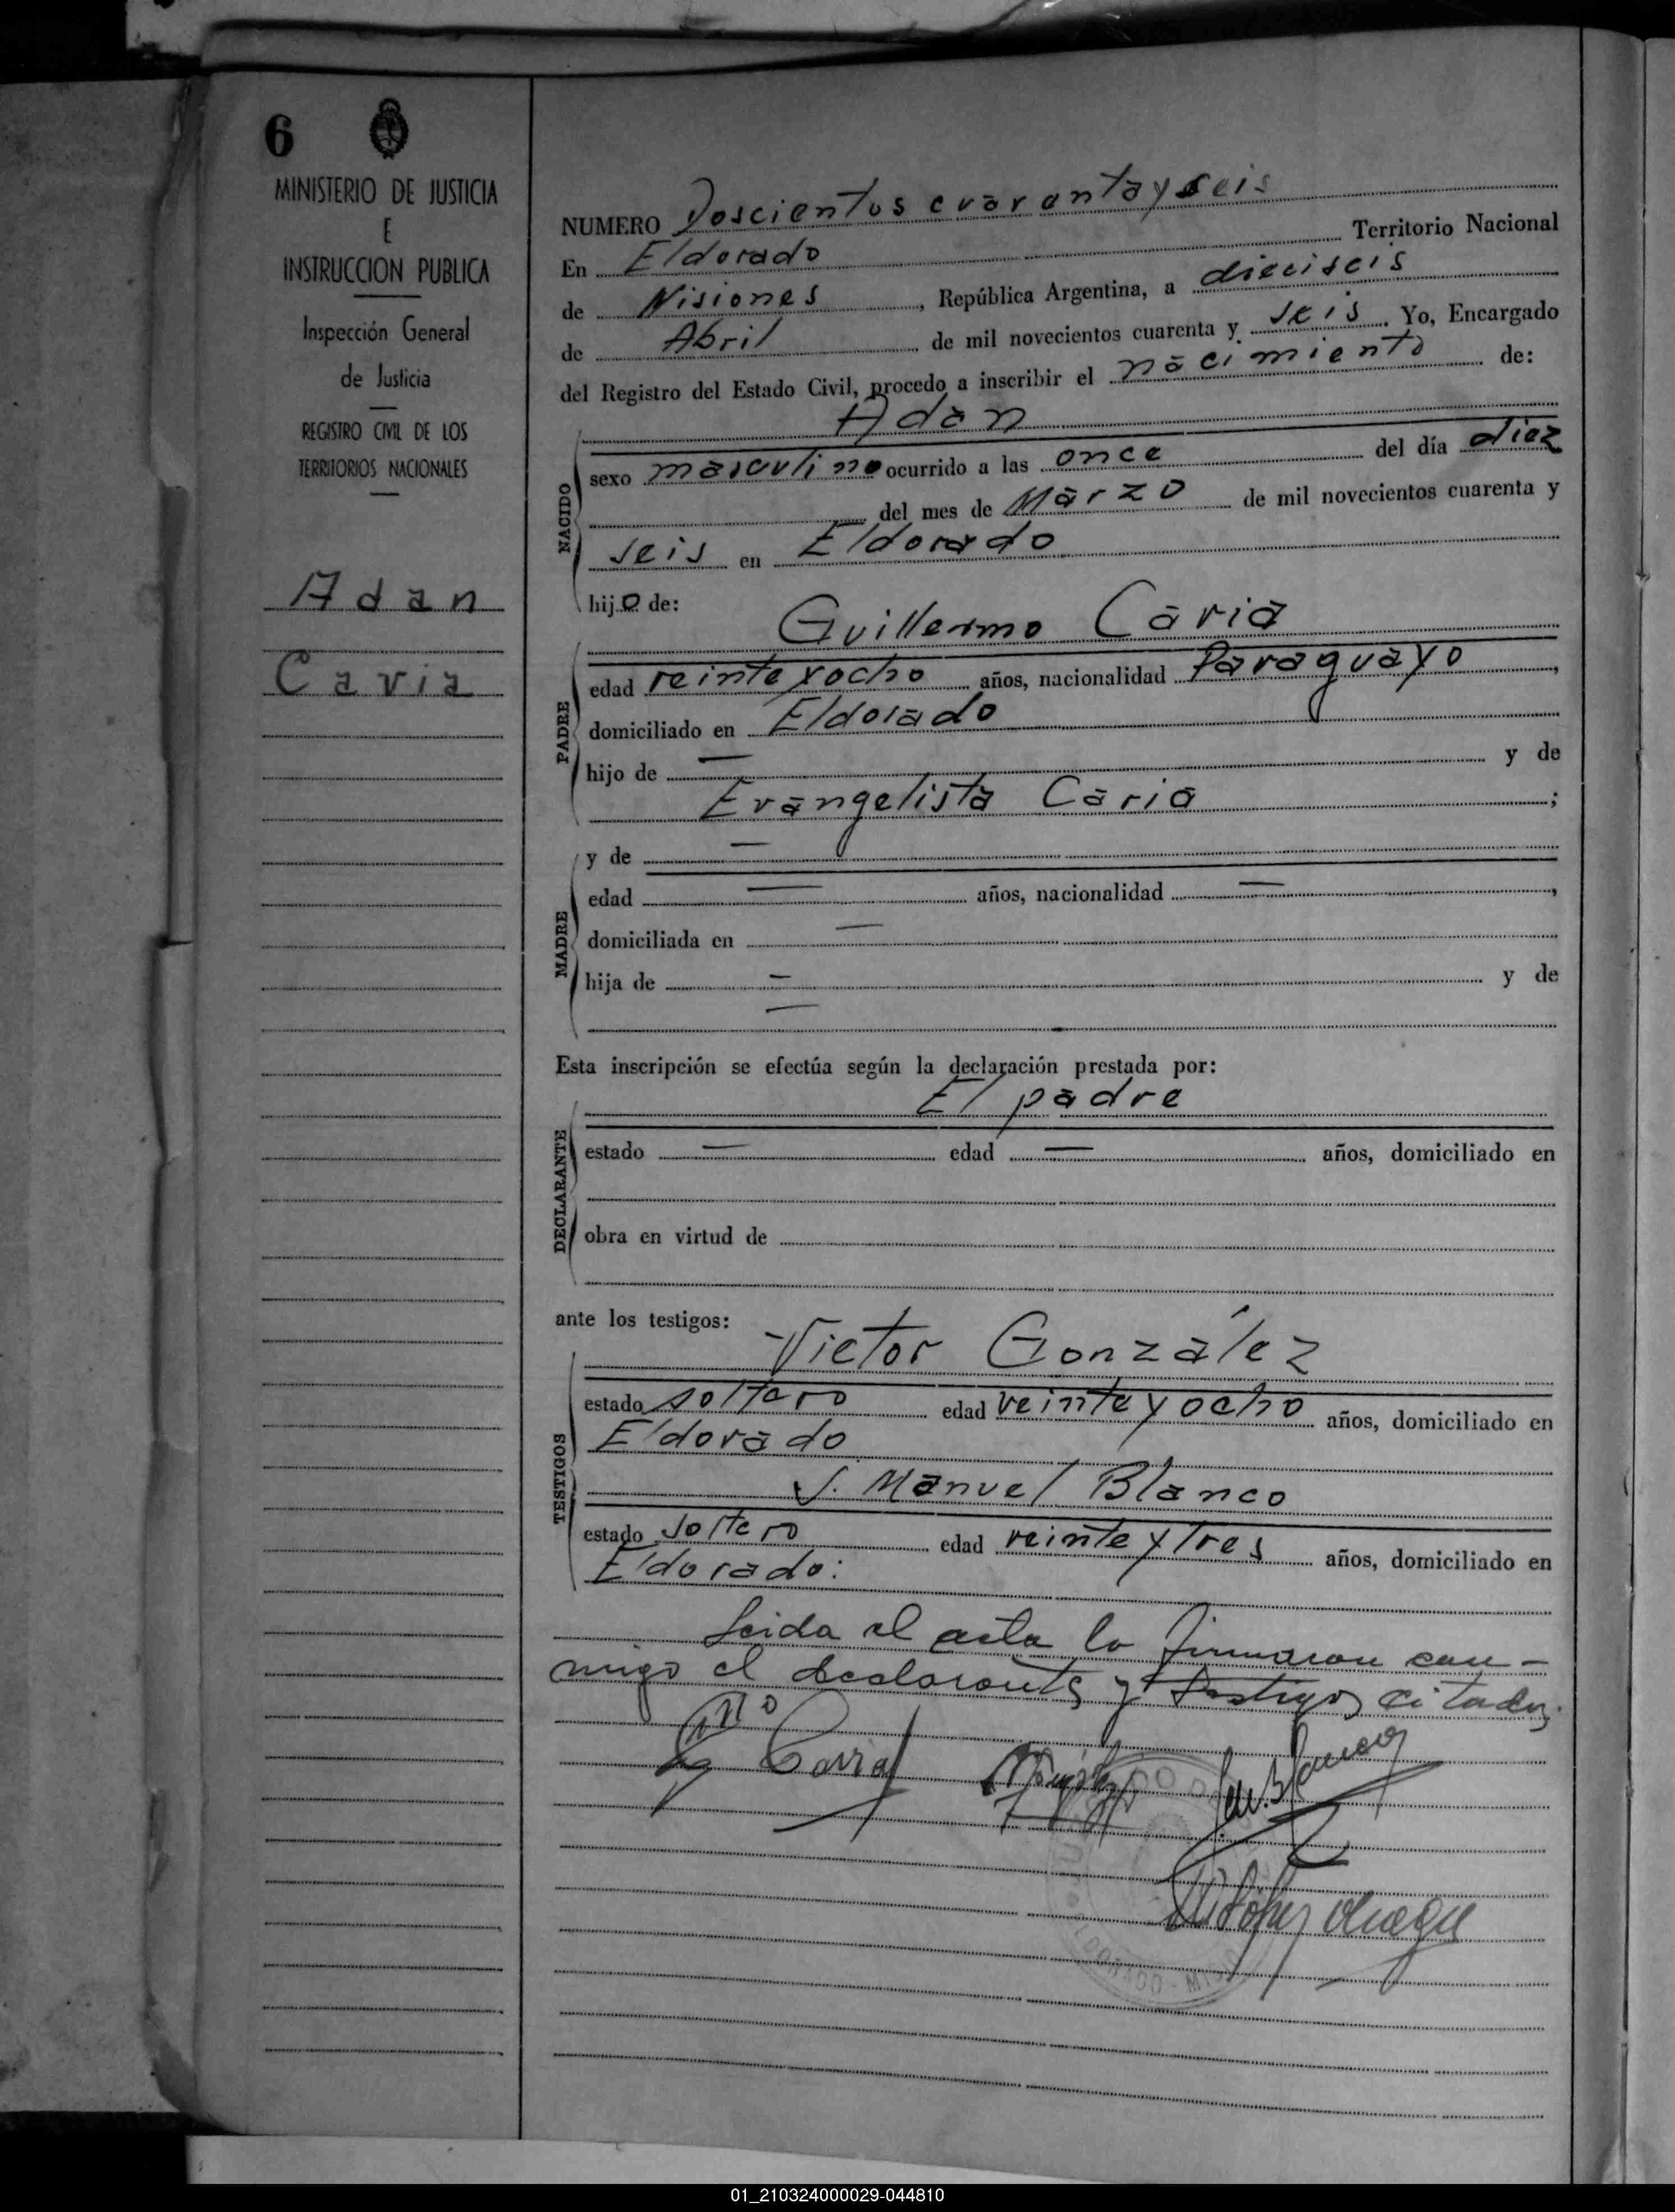 6
MINISTERIO DE JUSTICIA
E
INSTRUCCION PUBLICA
Inspección General
de Justicia
REGISTRO CIVIL DE LOS
TERRITORIOS NACIONALES
Adan
Cavia
NUMERO Doscientos cuarenta y seis
En Eldorado Territorio Nacional
de Misiones, República Argentina, a dieciseis
de Abril de mil novecientos cuarenta y seis. Yo, Encargado
del Registro del Estado Civil, procedo a inscribir el nacimiento de:
Adan
NACIDO
sexo masculino ocurrido a las once del día diez
del mes de Marzo de mil novecientos cuarenta y
seis en Eldorado
hijo de:
Guillermo Cavia
PADRE
edad veinte y ocho años, nacionalidad Paraguayo,
domiciliado en Eldorado
hijo de — y de
Evangelista Cavia;
MADRE
y de —
edad — años, nacionalidad —,
domiciliada en —
hija de — y de
—
Esta inscripción se efectúa según la declaración prestada por:
El padre
DECLARANTE
estado — edad — años, domiciliado en
obra en virtud de
ante los testigos:
Victor González
TESTIGOS
estado soltero edad veinte y ocho años, domiciliado en
Eldorado
J. Manuel Blanco
estado soltero edad veinte y tres años, domiciliado en
Eldorado:
Leida el acta la firmaron con-
migo el declarante y testigos citados.
G Cavia
ELDORADO - MIS
01_210324000029-044810